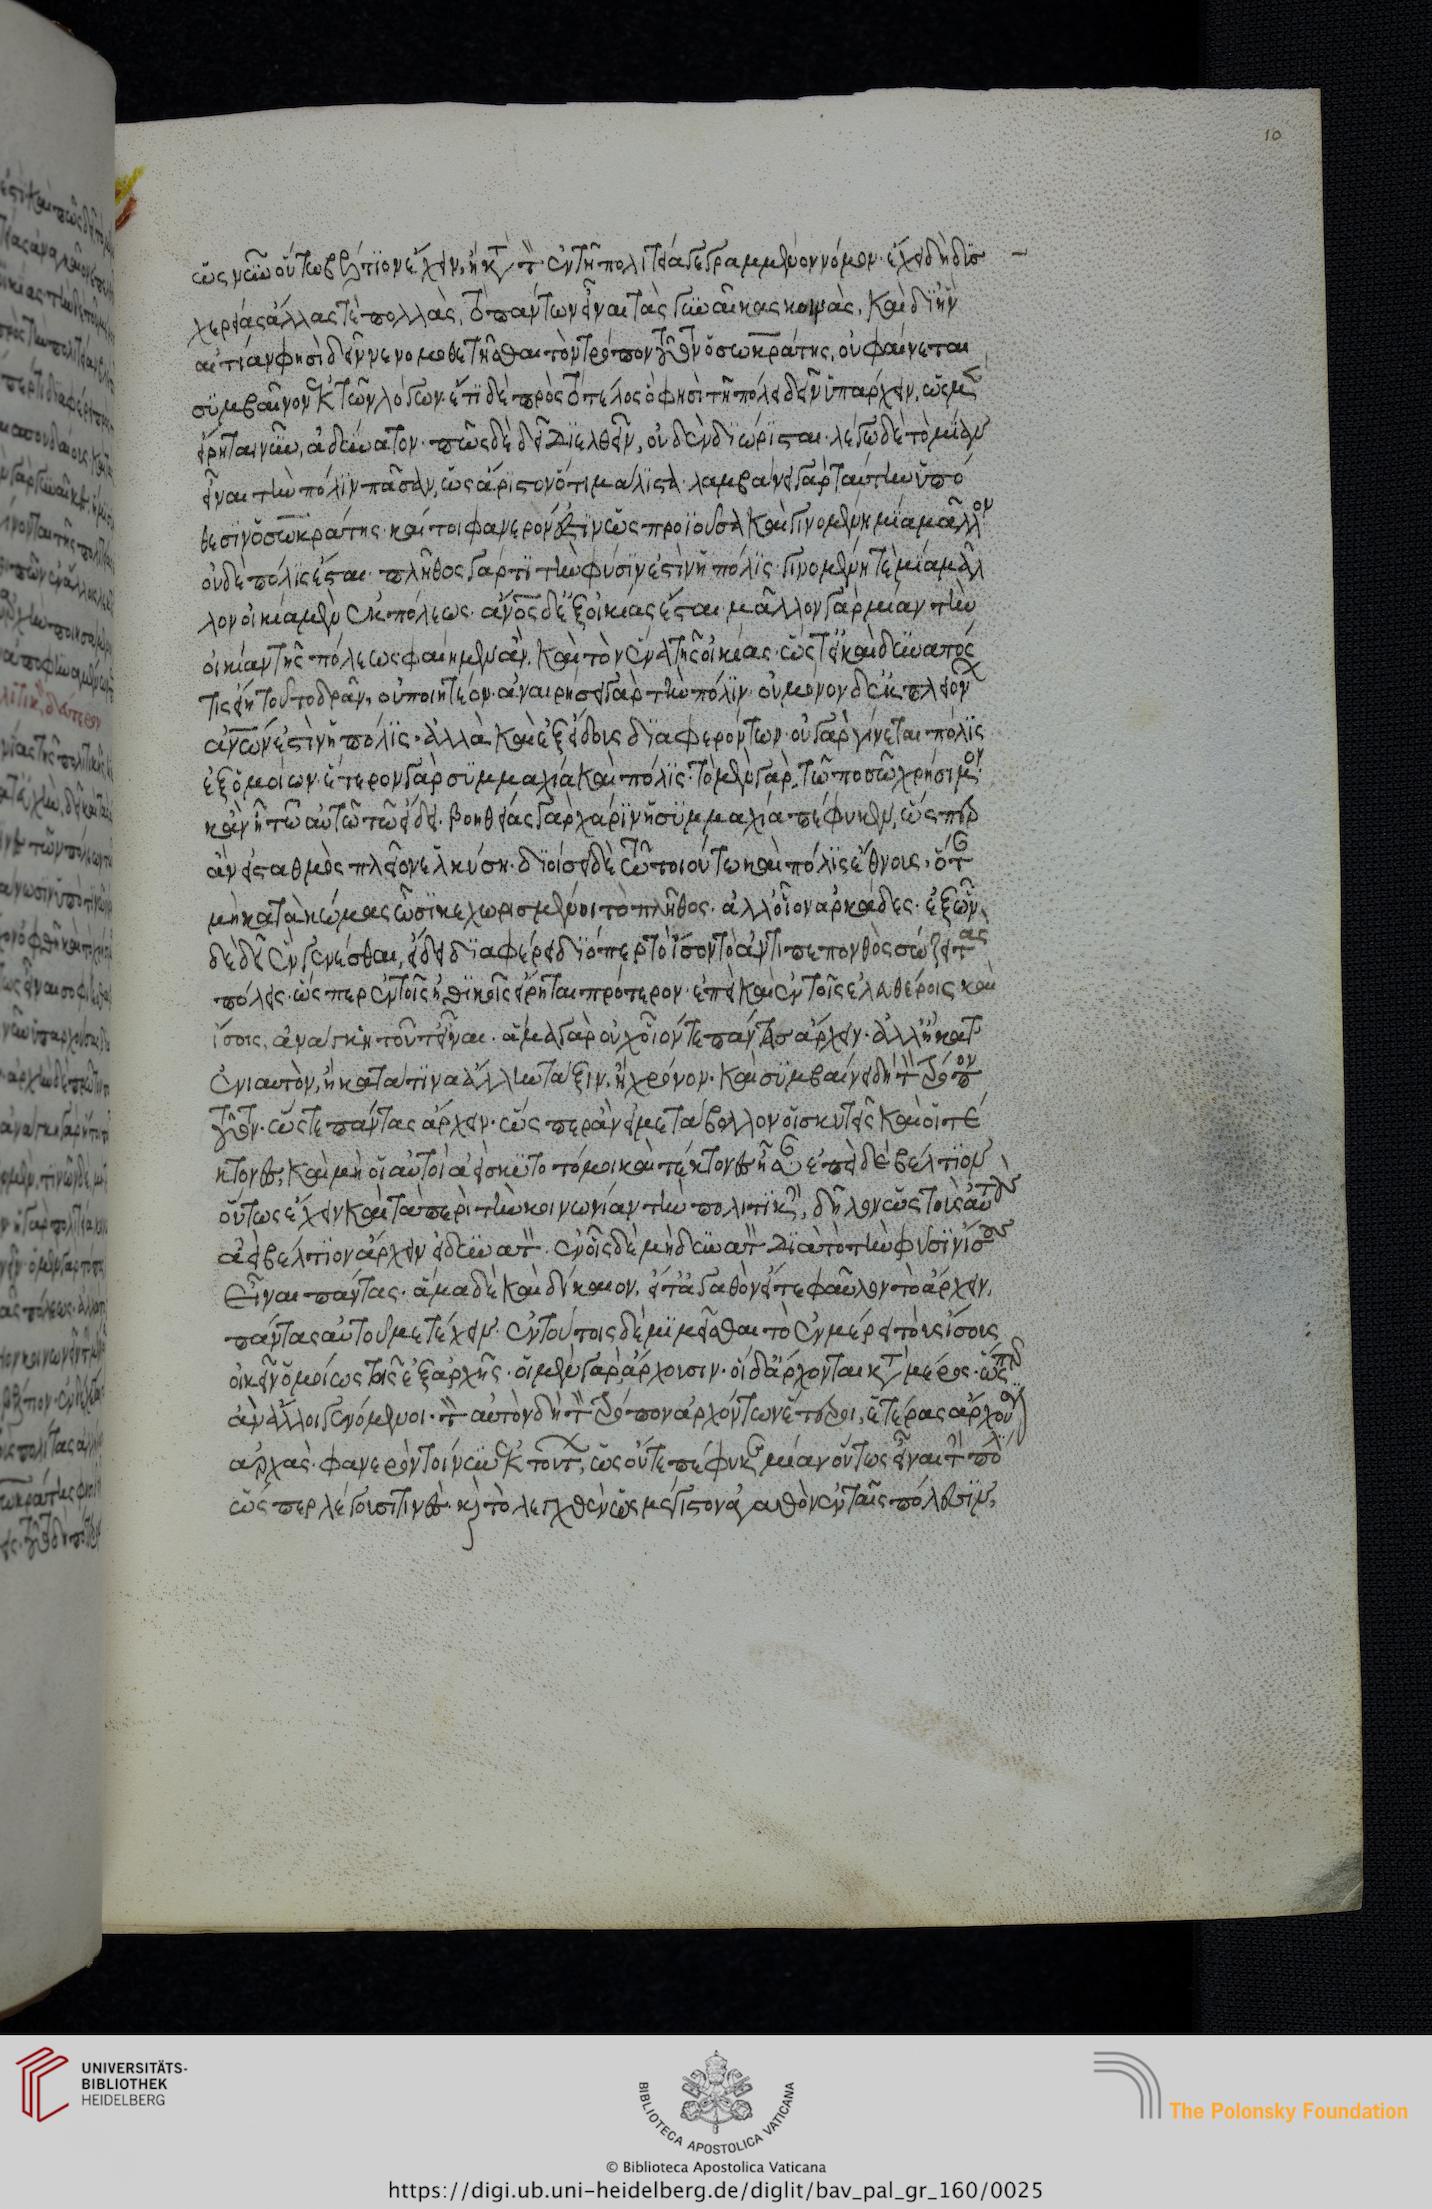 10
ὡς νῦν οὕτω βέλτιον ἔχειν, ἢ κατὰ τὸν ἐν τῇ πολιτεία γεγραμμένον νόμον· ἔχει δὴ δυσ
χερείας ἄλλας τὲ πολλὰς, τὸ πάντων εἶναι τὰς γυναῖκας κοινὰς, καὶ δι ἣν
αἰτίαν φησὶ δεῖν νενομοθετῆσθαι τὸν τρόπον τοῦτον ὁ σωκράτης, οὐ φαίνεται
συμβαῖνον ἐκ τῶν λόγων· ἔτι δὲ πρὸς τὸ τέλος ὅ φησὶ τῇ πόλει δεῖν ὑπάρχειν, ὡς μὲν
εἴρηται νῦν, ἀδύνατον· πῶς δὲ δεῖ διελθεῖν, οὐδὲν διώρισται· λέγω δὲ τὸ μίαν
εἶναι τὴν πόλιν πᾶσαν, ὡς ἄριστον ὅτι μάλιστα· λαμβάνει γὰρ ταύτην ὑπό
θεσιν ὁ σωκράτης· καί τοι φανερόν ἐστιν ὡς προϊοῦσα καὶ γινομένη μία μᾶλλον
οὐδὲ πόλις ἔσται· πλῆθος γάρ τι τὴν φύσιν ἐστὶν ἡ πόλις· γινομένη τὲ μία μᾶλ
λον οἰκία μὲν ἐκ πόλεως· ἄνος δ ἐξ οἰκίας ἔσται· μᾶλλον γὰρ μίαν τὴν
οἰκίαν τῆς πόλεως φαίημεν ἂν, καὶ τὸν ἕνα τῆς οἰκίας· ὥστ εἰ καὶ δυνατός
τις εἴη τοῦτο δρᾶν, οὐ ποιητέον· ἀναιρήσει γὰρ τὴν πόλιν· οὐ μόνον δ ἐκ πλειόνων
ἀνων ἐστὶν ἡ πόλις· ἀλλὰ καὶ ἐξ εἴδει διαφερόντων· οὐ γὰρ γίνεται πόλις
ἐξ ὁμοίων· ἕτερον γὰρ συμμαχία καὶ πόλις· τὸ μὲν γὰρ, τῶ ποσῶ χρήσιμον
κἂν ἢ τῶ αὐτῶ τῶ εἴδει· βοηθείας γὰρ χάριν ἡ συμμαχία πέφυκεν, ὥσπερ
ἂν εἰ σταθμὸς πλεῖον ἑλκύση· διοίσει δὲ τῶ τοιούτω καὶ πόλις ἔθνους, ὅταν
μὴ κατὰ κώμας ὦσι κεχωρισμένοι τὸ πλῆθος· ἀλλ οἷον ἀρκάδες· ἐξ ὧν
δὲ δεῖ ἓν γενέσθαι, εἴδει διαφέρει διόπερ τὸ ἴσον τὸ ἀντιπεπονθὸς σώζει τὰς
πόλεις· ὥσπερ ἐν τοῖς ἠθικοῖς εἴρηται πρότερον· ἐπεὶ καὶ ἐν τοῖς ἐλευθέροις καὶ
ἴσοις, ἀνάγκη τοῦτ εἶναι· ἅμα γὰρ οὐχ οἷόν τε πάντας ἄρχειν· ἀλλ ἢ κατ
ἐνιαυτὸν, ἢ κατά τινα ἄλλην τάξιν, ἢ χρόνον· καὶ συμβαίνει δὴ τὸν τρόπον
τοῦτον· ὥστε πάντας ἄρχειν· ὥσπερ ἂν εἰ μετάβαλλον οἱ σκυτεῖς καὶ οἱ τέ
κτονες, καὶ μὴ οἱ αὐτοὶ ἀεὶ σκυτοτόμοι καὶ τέκτονες ἦσαν ἐπεὶ δὲ βέλτιον
οὕτως ἔχειν καὶ τὰ περὶ τὴν κοινωνίαν τὴν πολιτικὴν, δῆλον ὡς τοὺς αὐτοὺς
ἀεὶ βέλτιον ἄρχειν εἰ δυνατὸν· ἐν οἷς δὲ μὴ δυνατὸν διὰ τὸ τὴν φύσιν ἴσους
εἶναι πάντας· ἅμα δὲ καὶ δίκαιον, εἴτ ἀγαθὸν εἴτε φαῦλον τὸ ἄρχειν,
πάντας αὐτοῦ μετέχειν· ἐν τούτοις δὲ μιμεῖσθαι τὸ ἐν μέρει τοὺς ἴσους
οἰκεῖν ὁμοίως τοῖς ἐξ ἀρχῆς· οἱ μὲν γὰρ ἄρχουσιν· οἱ δ ἄρχονται κατὰ μέρος· ὥσπερ
ἂν ἄλλοι γενόμενοι· τὸν αὐτὸν δὴ τὸν τρόπον ἀρχόντων ἕτεροι, ἑτέρας ἄρχουσιν
ἀρχὰς· φανερὸν τοίνυν ἐκ τούτων, ὡς οὔτε πέφυκε μίαν οὕτως εἶναι τὴν πόλιν
ὥσπερ λέγουσι τινες· καὶ τὸ λεχθὲν ὡς μέγιστον ἀγαθὸν ἐν ταῖς πόλεσιν,
UNIVERSITÄTS-
BIBLIOTHEK
HEIDELBERG
BIBLIOTECA APOSTOLICA VATICANA
© Biblioteca Apostolica Vaticana
The Polonsky Foundation
https://digi.ub.uni-heidelberg.de/diglit/bav_pal_gr_160/0025